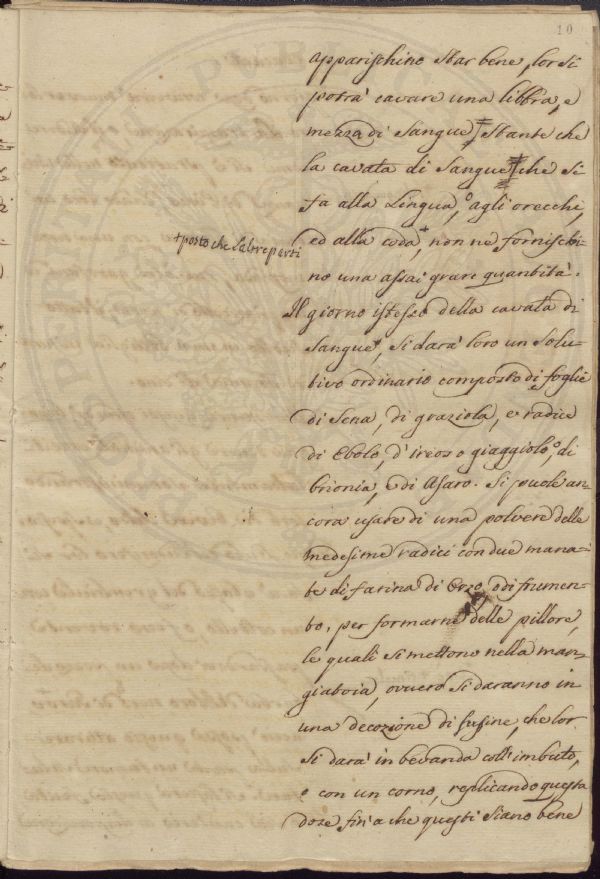 10
apparischino star bene, lor si
potrà cavare una libbra, e
mezza di Sangue, stante che
la cavata di Sangue che si
fa alla Lingua, o agli orecchi,
ed alla coda+, non ne fornischi-
+ posto che l'altre parti
no una assai grave quantità.
Il giorno istesso della cavata di
Sangue, si darà loro un Solu-
tivo ordinario composto di foglie
di Sena, di graziola, e radice
di Ebolo, d'ireos o giaggiolo, o di
brionia, e di Asaro. Si puole an-
cora usare di una polvere delle
medesime radici con due mana-
te di farina di Orzo, o di frumen-
to, per formarne delle pillore,
le quali si mettono nella man-
giatoia, ovvero si daranno in
una decozione di susine, che lor
si darà in bevanda coll'imbuto,
e con un corno, replicando questa
doze fin'a che questi siano bene